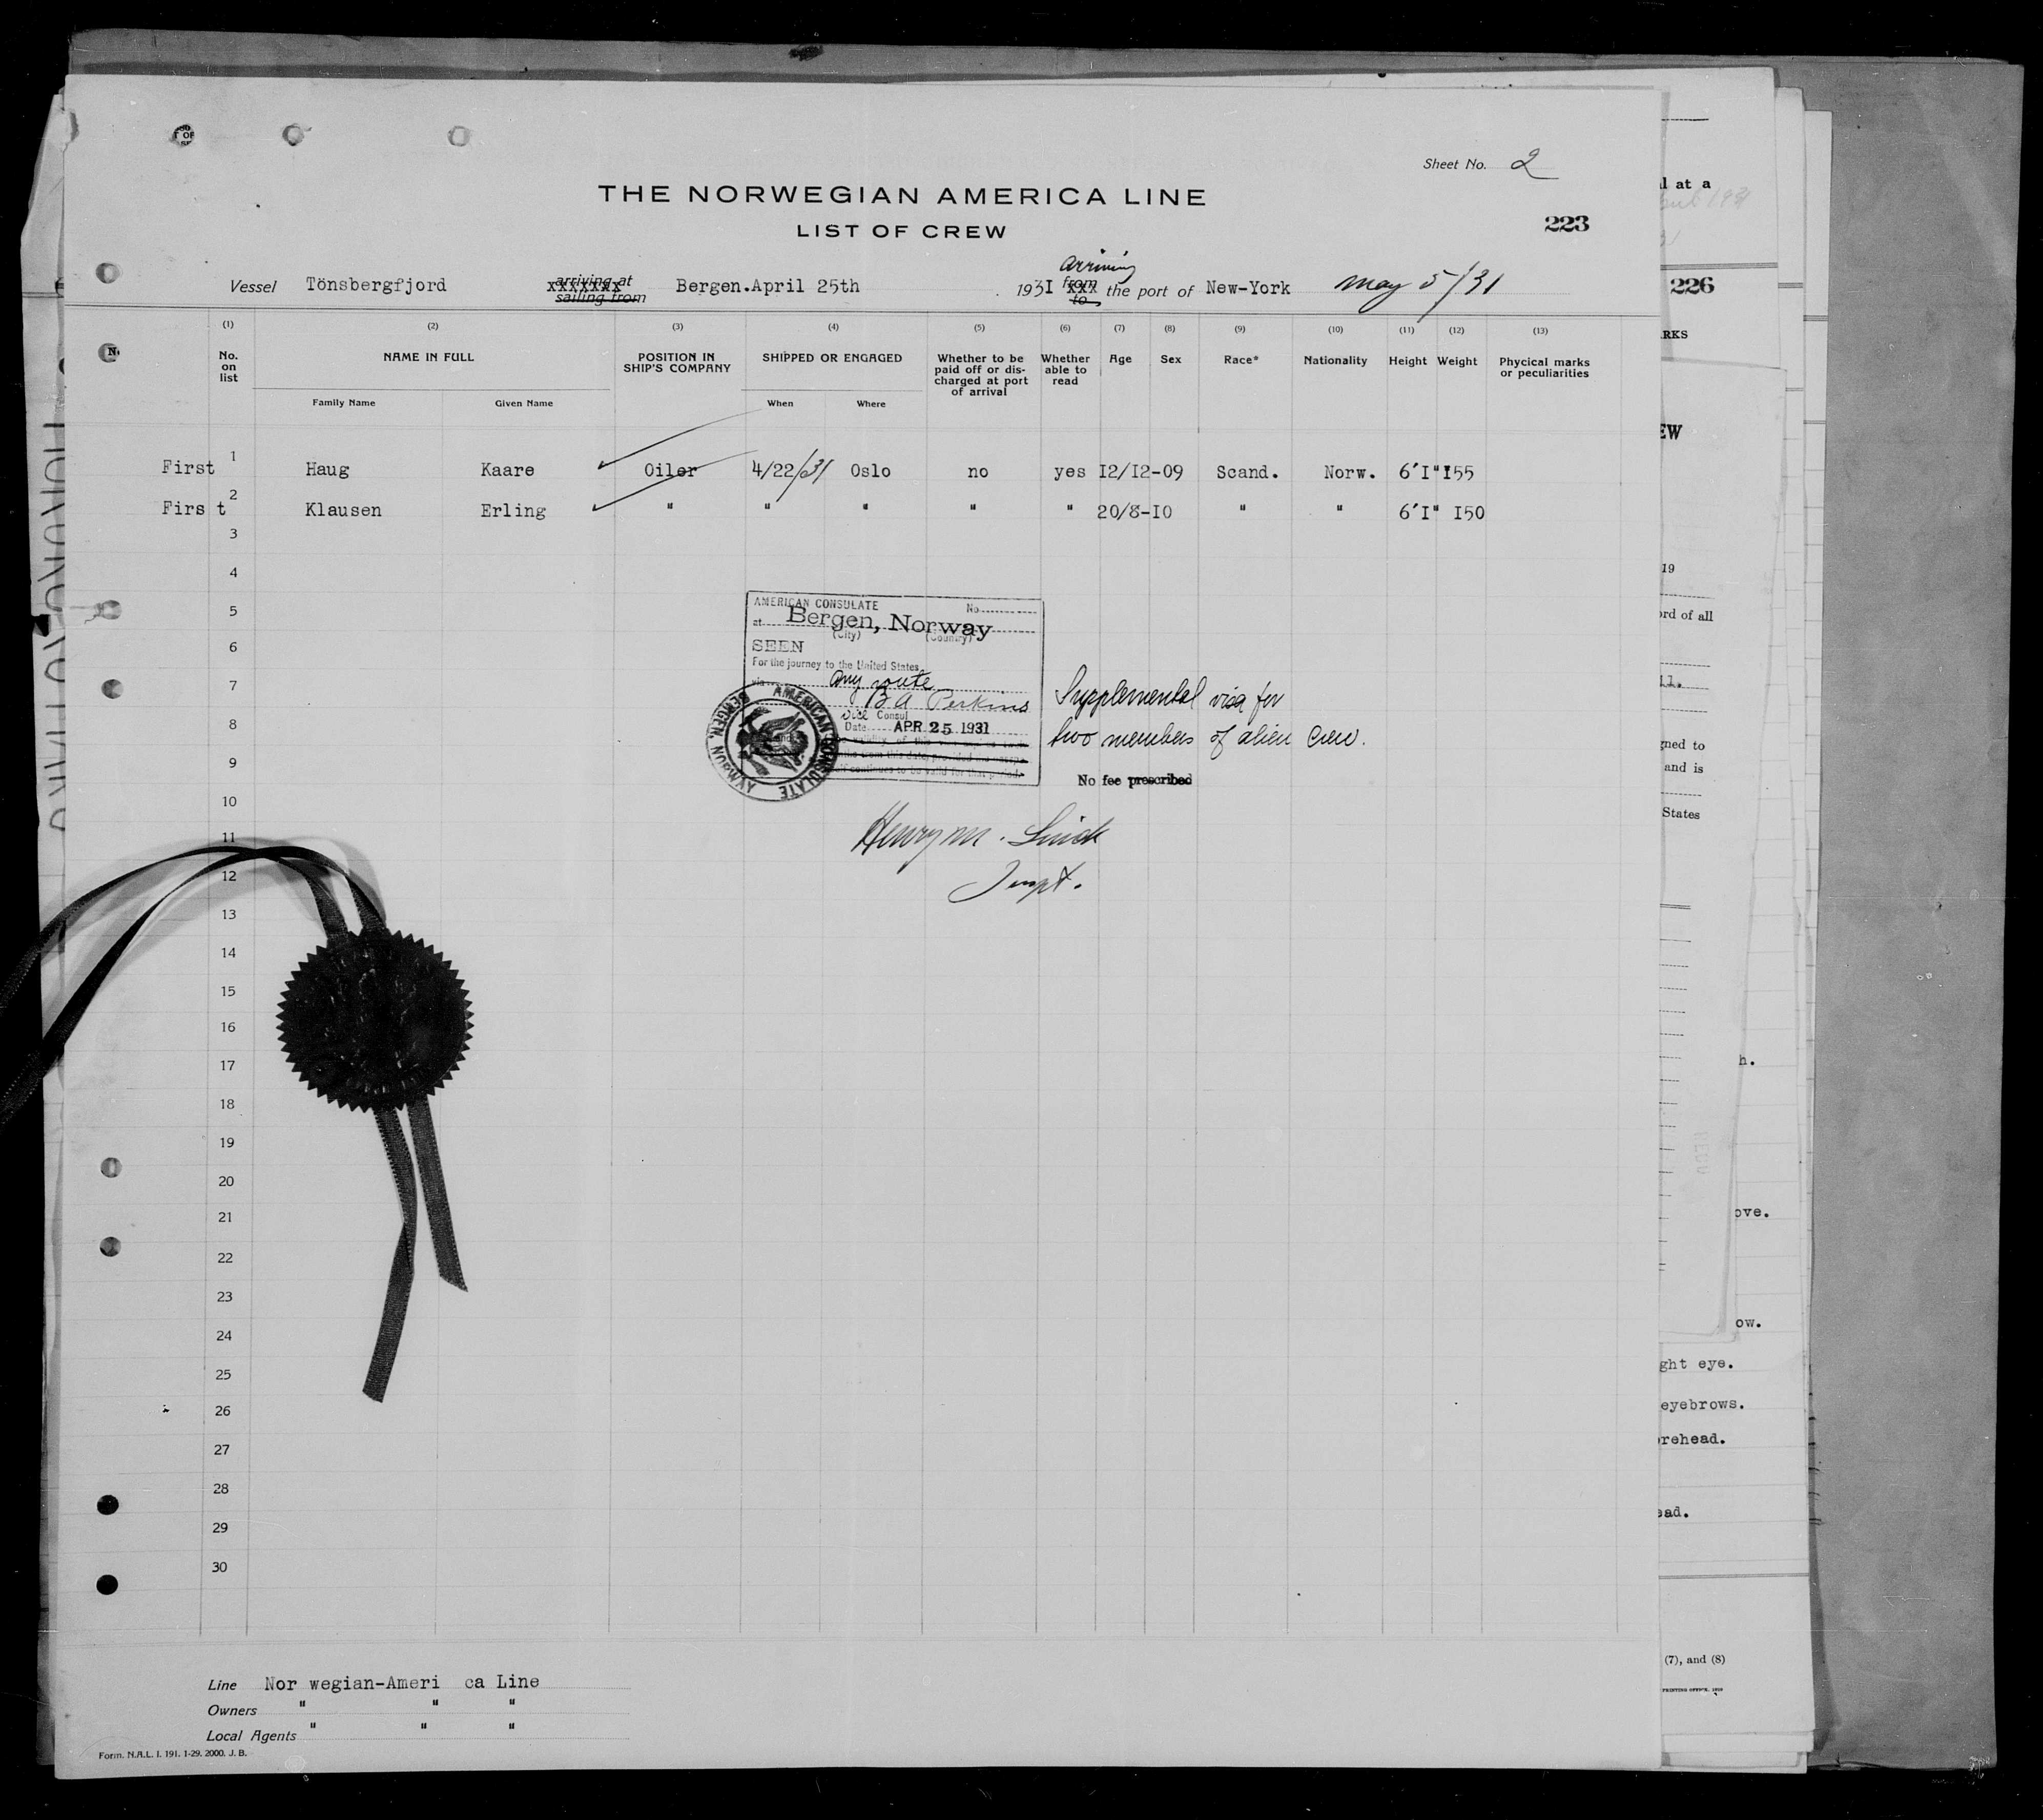 Sheet No. 2
THE NORWEGIAN AMERICA LINE
LIST OF CREW
223
Vessel Tönsbergfjord arriving at sailing from Bergen.April 25th 193I arriving from to the port of New-York May 5/31
(1) (2) (3) (4) (5) (6) (7) (8) (9) (10) (11) (12) (13)
No. on list NAME IN FULL POSITION IN SHIP'S COMPANY SHIPPED OR ENGAGED Whether to be paid off or discharged at port of arrival Whether able to read Age Sex Race* Nationality Height Weight Phycical marks or peculiarities
Family Name Given Name When Where
First 1 Haug Kaare Oiler 4/22/31 Oslo no yes I2/I2-09 Scand. Norw. 6'I" I55
First 2 Klausen Erling " " " " " 20/8-I0 " " 6'I" I50
3
4
5
6
7
8
9
10
11
12
13
14
15
16
17
18
19
20
21
22
23
24
25
26
27
28
29
30
AMERICAN CONSULATE No
at Bergen, Norway
(City) (Country)
SEEN
For the journey to the United States
via any route
B A Perkins
Vice Consul
Date APR 25 1931
AMERICAN CONSULATE BERGEN, NORWAY
Supplemental visa for
two members of alien crew.
No fee prescribed
Henry M.
Inspt.
Line Nor wegian-Ameri ca Line
Owners " " "
Local Agents " " "
Form. N.A.L. I. 191. 1-29. 2000. J. B.
l at a
226
RKS
EW
19
ord of all
11.
gned to
and is
States
h.
ove.
ow.
ght eye.
eyebrows.
rehead.
ead.
(7), and (8)